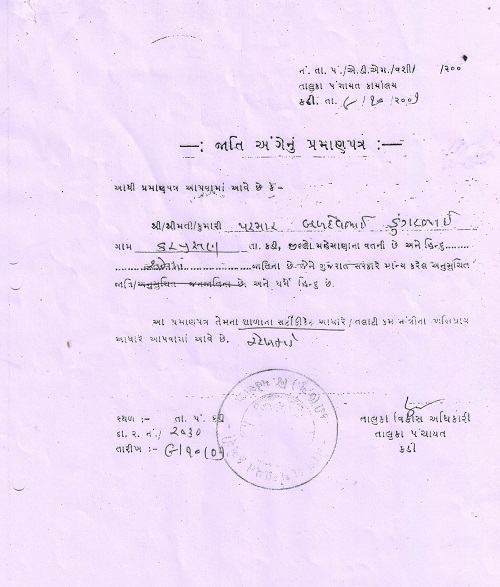 નં. તા. પં./એ.ડી.એમ./વશી/ /૨૦૦
તાલુકા પંચાયત કાર્યાલય
કડી. તા. ૯/૧૦/૨૦૦૧
—: જાતિ અંગેનું પ્રમાણપત્ર :—
આથી પ્રમાણપત્ર આપવામાં આવે છે કે-
શ્રી/શ્રીમતી/કુમારી પરમાર બળદેવભાઈ ડુંગરભાઈ
ગામ તા. કડી, જીલ્લો મહેસાણાના વતની છે અને હિન્દુ........
જાતિના છે જેને ગુજરાત સરકારે માન્ય કરેલ અનુસુચિત
જાતિ/અનુસુચિત જનજાતિના છે. અને ધર્મે હિન્દુ છે.
આ પ્રમાણપત્ર તેમના શાળાના સર્ટીફીકેટ આધારે/ તલાટી કમ મંત્રીના અભિપ્રાય
આધારે આપવામાં આવે છે.
સ્થળ :- તા. પં. કડી
દા. ર. નં./ ૨૦૩૦
તારીખ :- ૯/૧૦/૦૧
તાલુકા વિકાસ અધિકારી
તાલુકા પંચાયત
કડી